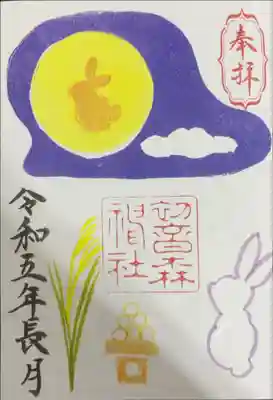 奉拝
初音森
神社
令和五年長月